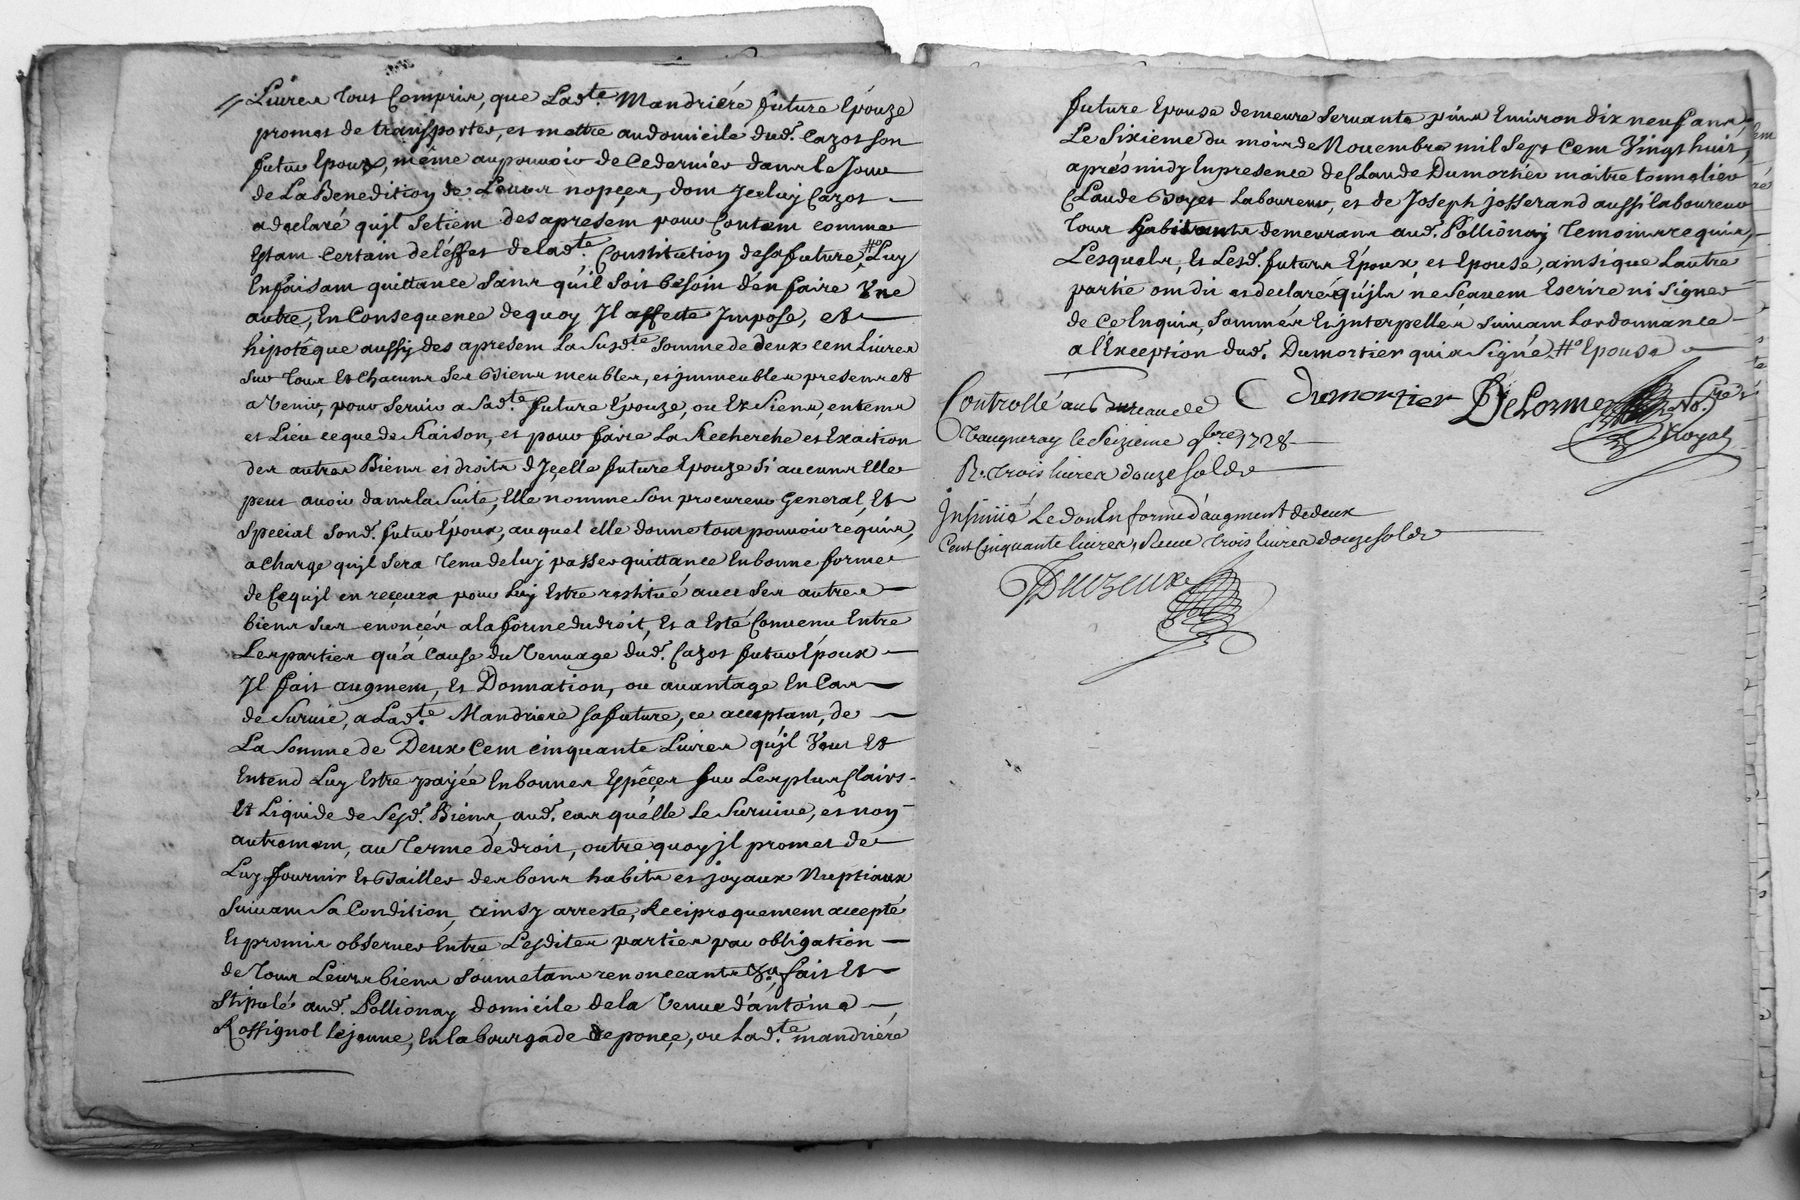 Livres tous Compris, que Lad.te Mandriére future Epouze
promet de transporter, et mettre audomicile dud.t Cazot son
futur Epoux, même aupouvoir de Cedernier dans le Jour
de La Benediction de Leurs nopçes, dont Jceluy Cazot
adeclaré qu'jl se tient desapresent pour Content comme
Estant Certain del'éffet delad.te Constitution desafuture, # Luy
Enfaisant quittance sans qu'il soit besoin d'en faire Vne
autre, En Consequence dequoy Jl affecte Jmpose, et
hipotêque aussy des apresent La Susd.te somme de deux cent Livres
sur tous Et Chacuns ses Biens meubles, et jmmeubles presents et
a Venir, pour servir a Sad.te future Epouze, ou Ex Siens, entems
et Lieu ceque de Raison, et pour faire La Recherche et Exaction
des autres Biens et droits d'Jçelle future Epouze si aucuns Elle
peut avoir dans la suite, Elle nomme son procureur General, Et
special sond.t futur Epoux, auquel elle donne tout pouvoir réquis,
acharge qu'jl sera tenu deluy passer quittance Enbonne forme
de Cequ'jl en reçeura pour Luy Estre restitué avec ses autres
biens sus enonçés ala forme du droit, Et a Esté Convenu Entre
Les parties qu'a Cause du Veuuage dud.t Cazot futur Epoux
Jl fait augment, Et Donnation, ou avantage En Cas
de survie, a Lad.te Mandriere safuture, ce acceptant, de
La somme de Deux Cent cinquante Livres qu'jl Veut Et
Entend Luy Estre payée Enbonnes Espêçes sur Les plus Clairs
Et Liquide de Sesd.t Biens, aud.t cas qu'élle Le survive, et non
autrement, au terme de droit, outre quoy jl promet de
Luy fournir Et Bailler des bons habits et joyaux Nuptiaux
suivant sa Condition, ainsy arresté, Reciproquement accepté
Et promis observer Entre Lesdites parties par obligation
de tous Leurs biens soumetans renonceants &a, fait Et
stipulé aud.t Pollionay domicile dela Veuve d'antoine
Rossignol lejeune, En la bourgade de ponçe, ou Lad.te mandriére
future Epouse demeure servante puis Environ dix neuf ans,
Le sixieme du mois de Novembre mil sept Cent Vingt huit,
aprés midy En presence de Claude Dumortier maitre tonnelier
Claude Boyet Laboureur, et de Joseph josserand aussi laboureur
tous habitants demeurans aud.t Pollionay temoins requis,
Lesquels, Et Lesd.t futurs Epoux, et Epouse, ainsi que Lautre
partie ont dit et declaré qu'jls ne sçavent Escrire ni signer
de ce Enquis, sommés Et jnterpellés suivant Lordonnance
a l'éxception dud.t Dumortier qui a signé. # Epouse
C dumortier DeLorme No.re Royal
Controllé au Bureau de
Vaugneray le seizieme 9bre 1728
R. trois livres douze sols
Jnsinué Le don En forme d'augment dedeux
Cent Cinquante livres, Receu trois livres douze sols